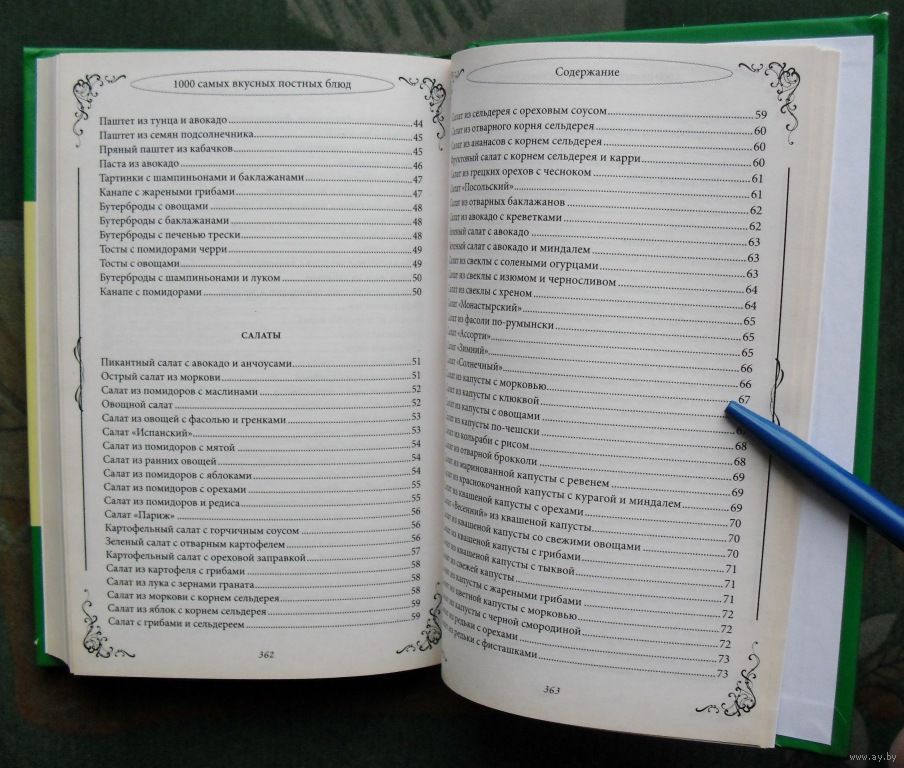 1000 самых вкусных постных блюд
Паштет из тунца и авокадо 44
Паштет из семян подсолнечника 45
Пряный паштет из кабачков 45
Паста из авокадо 46
Тартинки с шампиньонами и баклажанами 47
Канапе с жареными грибами 47
Бутерброды с овощами 48
Бутерброды с баклажанами 48
Бутерброды с печенью трески 48
Тосты с помидорами черри 49
Тосты с овощами 49
Бутерброды с шампиньонами и луком 50
Канапе с помидорами 50
САЛАТЫ
Пикантный салат с авокадо и анчоусами 51
Острый салат из моркови 51
Салат из помидоров с маслинами 52
Овощной салат 52
Салат из овощей с фасолью и гренками 53
Салат «Испанский» 53
Салат из помидоров с мятой 54
Салат из ранних овощей 54
Салат из помидоров с яблоками 54
Салат из помидоров с орехами 55
Салат из помидоров и редиса 55
Салат «Париж» 56
Картофельный салат с горчичным соусом 56
Зеленый салат с отварным картофелем 56
Картофельный салат с ореховой заправкой 57
Салат из картофеля с грибами 58
Салат из лука с зернами граната 58
Салат из моркови с корнем сельдерея 58
Салат из яблок с корнем сельдерея 59
Салат с грибами и сельдереем 59
362
Содержание
Салат из сельдерея с ореховым соусом 59
Салат из отварного корня сельдерея 60
Салат из ананасов с корнем сельдерея 60
Фруктовый салат с корнем сельдерея и карри 60
Салат из грецких орехов с чесноком 61
Салат «Посольский» 61
Салат из отварных баклажанов 62
Салат из авокадо с креветками 62
салат с авокадо 63
салат с авокадо и миндалем 63
Салат из свеклы с солеными огурцами 63
Салат из свеклы с изюмом и черносливом 64
Салат из свеклы с хреном 64
Салат «Монастырский» 65
Салат из фасоли по-румынски 65
Салат «Ассорти» 65
Салат «Зимний» 66
Салат «Солнечный» 66
из капусты с морковью 67
из капусты с клюквой
из капусты с овощами
из капусты по-чешски 68
из кольраби с рисом 68
из отварной брокколи 69
из маринованной капусты с ревенем 69
из краснокочанной капусты с курагой и миндалем 69
из квашеной капусты с орехами 70
«Весенний» из квашеной капусты 70
из квашеной капусты со свежими овощами 70
из квашеной капусты с грибами 71
из квашеной капусты с тыквой 71
из свежей капусты 71
из капусты с жареными грибами 72
из цветной капусты с морковью 72
из капусты с черной смородиной 72
из редьки с орехами 73
из редьки с фисташками 73
363
www.ay.by